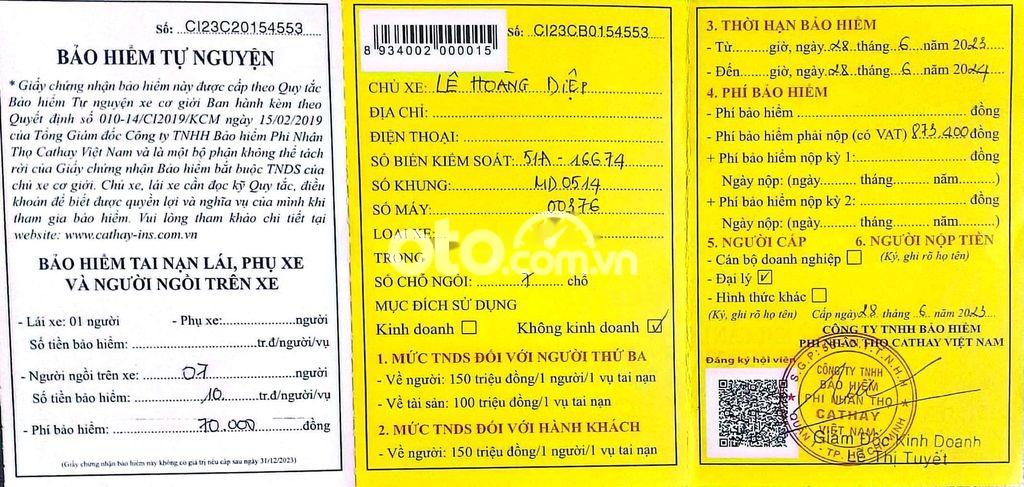 Số: CI23C20154553
BẢO HIỂM TỰ NGUYỆN
* Giấy chứng nhận bảo hiểm này được cấp theo Quy tắc
Bảo hiểm Tự nguyện xe cơ giới Ban hành kèm theo
Quyết định số 010-14/CI2019/KCM ngày 15/02/2019
của Tổng Giám đốc Công ty TNHH Bảo hiểm Phi Nhân
Thọ Cathay Việt Nam và là một bộ phận không thể tách
rời của Giấy chứng nhận Bảo hiểm bắt buộc TNDS của
chủ xe cơ giới. Chủ xe, lái xe cần đọc kỹ Quy tắc, điều
khoản để biết được quyền lợi và nghĩa vụ của mình khi
tham gia bảo hiểm. Vui lòng tham khảo chi tiết tại
website: www.cathay-ins.com.vn
BẢO HIỂM TAI NẠN LÁI, PHỤ XE
VÀ NGƯỜI NGỒI TRÊN XE
- Lái xe: 01 người - Phụ xe:..................người
Số tiền bảo hiểm:..................tr.đ/người/vụ
- Người ngồi trên xe: 07 người
Số tiền bảo hiểm: 10 tr.đ/người/vụ
- Phí bảo hiểm: 70.000 đồng
(Giấy chứng nhận bảo hiểm này không có giá trị nếu cấp sau ngày 31/12/2023)
8 934002 000015
Số: CI23CB0154553
CHỦ XE: LÊ HOÀNG DIỆP
ĐỊA CHỈ:
ĐIỆN THOẠI:
SỐ BIỂN KIỂM SOÁT: 51A - 16674
SỐ KHUNG: MD0514
SỐ MÁY: 00376
LOẠI XE:
TRỌNG
oto.com.vn
SỐ CHỖ NGỒI: 7 chỗ
MỤC ĐÍCH SỬ DỤNG
Kinh doanh ☐ Không kinh doanh ☑
1. MỨC TNDS ĐỐI VỚI NGƯỜI THỨ BA
- Về người: 150 triệu đồng/1 người/1 vụ tai nạn
- Về tài sản: 100 triệu đồng/1 vụ tai nạn
2. MỨC TNDS ĐỐI VỚI HÀNH KHÁCH
- Về người: 150 triệu đồng/1 người/1 vụ tai nạn
3. THỜI HẠN BẢO HIỂM
- Từ..........giờ, ngày 28 tháng 6 năm 2023
- Đến..........giờ, ngày 28 tháng 6 năm 2024
4. PHÍ BẢO HIỂM
- Phí bảo hiểm..................đồng
- Phí bảo hiểm phải nộp (có VAT) 873.400 đồng
+ Phí bảo hiểm nộp kỳ 1:..................đồng
Ngày nộp: (ngày.......... tháng.......... năm..........)
+ Phí bảo hiểm nộp kỳ 2:..................đồng
Ngày nộp: (ngày.......... tháng.......... năm..........)
5. NGƯỜI CẤP 6. NGƯỜI NỘP TIỀN
- Cán bộ doanh nghiệp ☐ (Ký, ghi rõ họ tên)
- Đại lý ☑
- Hình thức khác ☐
(Ký, ghi rõ họ tên) Cấp ngày 28 tháng 6 năm 2023
CÔNG TY TNHH BẢO HIỂM
PHI NHÂN THỌ CATHAY VIỆT NAM
Đăng ký hội viên
CÔNG TY TNHH
BẢO HIỂM
PHI NHÂN THỌ
CATHAY
VIỆT NAM
Giám Đốc Kinh Doanh
Lê Thị Tuyết